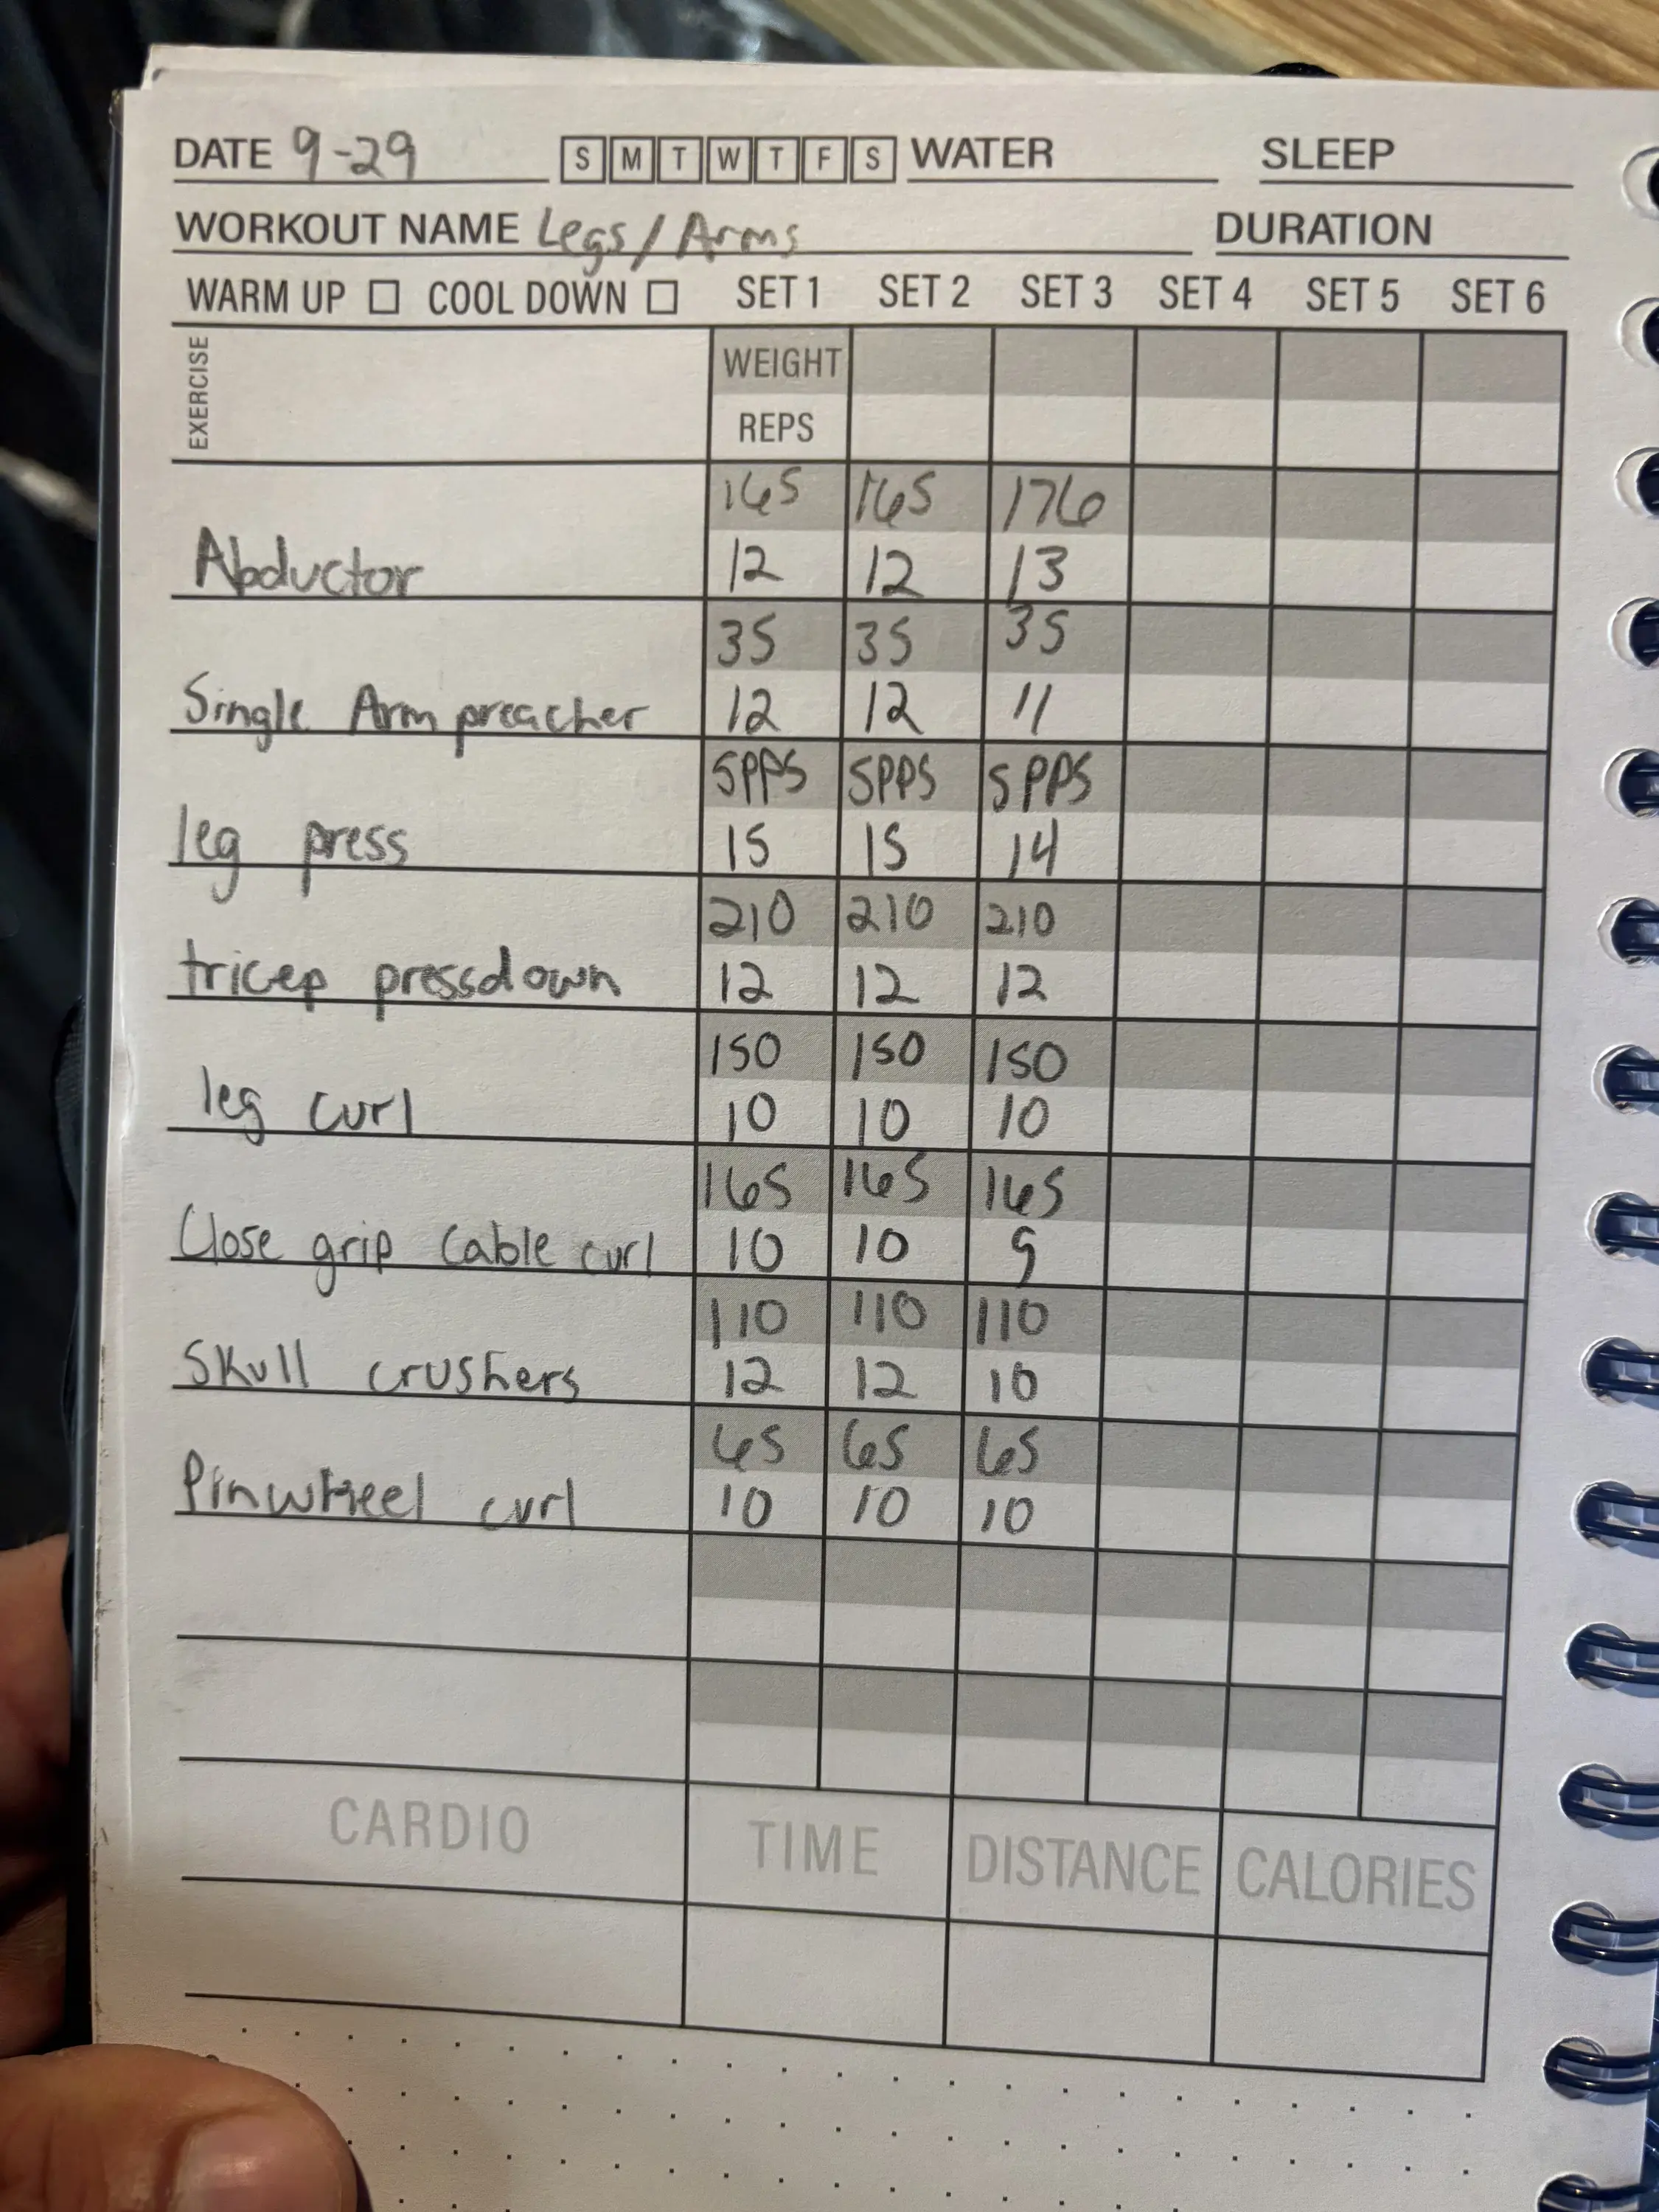 DATE 9-29 S M T W T F S WATER SLEEP
WORKOUT NAME Legs/Arms DURATION
WARM UP COOL DOWN SET 1 SET 2 SET 3 SET 4 SET 5 SET 6
EXERCISE WEIGHT
REPS
165 165 176
Abductor 12 12 13
35 35 35
Single Arm preacher 12 12 11
5PPS 5PPS 5PPS
leg press 15 15 14
210 210 210
tricep pressdown 12 12 12
150 150 150
leg curl 10 10 10
165 165 165
Close grip Cable curl 10 10 9
110 110 110
Skull crushers 12 12 10
65 65 65
Pinwheel curl 10 10 10
CARDIO TIME DISTANCE CALORIES